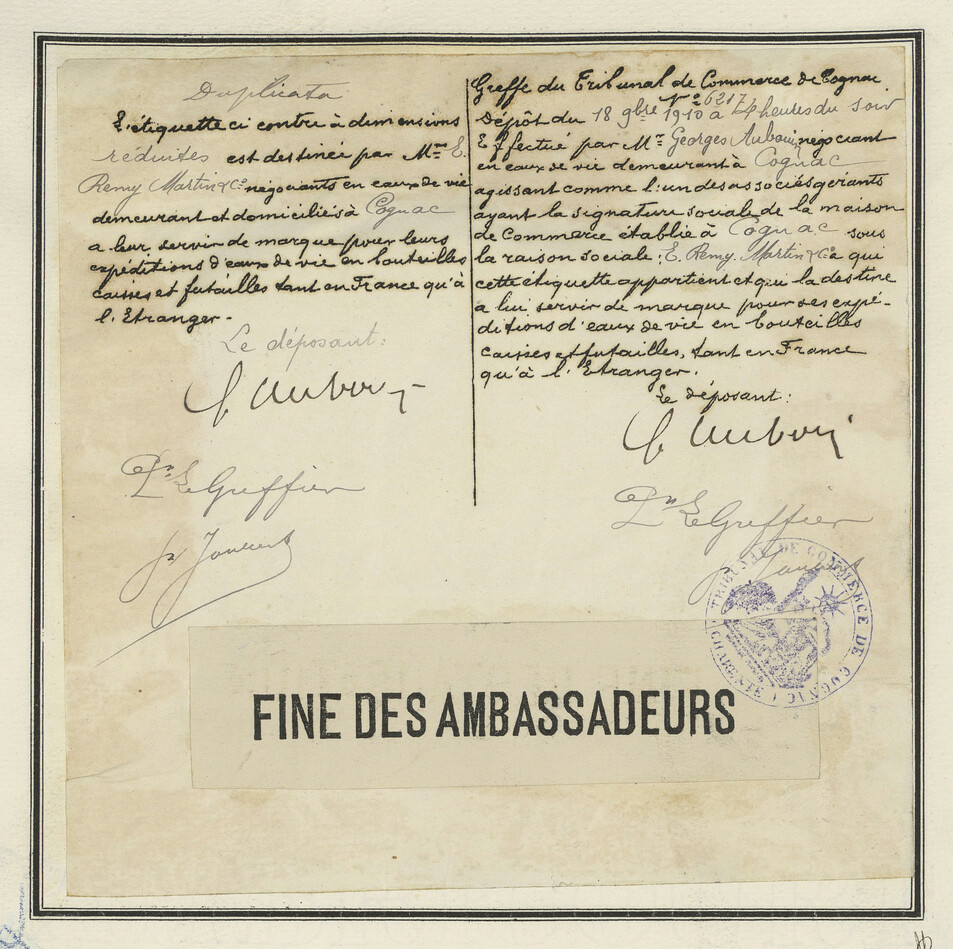 Duplicata
L'étiquette ci contre à dimensions
réduites est destinée par Mm. E.
Remy Martin & Co négociants en eaux de vie
demeurant et domiciliés à Cognac
a leur servir de marque pour leurs
expéditions d'eaux de vie en bouteilles
caisses et futailles tant en France qu'à
l'Etranger.
Le déposant:
Pr. Le Greffier
Greffe du Tribunal de Commerce de Cognac
Dépôt du 18 9bre No 6217 1910 à 4 heures du soir
Effectué par Mr Georges Auboin, négociant
en eaux de vie demeurant à Cognac
agissant comme l'un des associés gérants
ayant la signature sociale de la maison
de Commerce établie à Cognac sous
la raison sociale: E. Remy Martin & Co à qui
cette étiquette appartient et qui la destine
a lui servir de marque pour ses expé-
ditions d'eaux de vie en bouteilles
caisses et futailles, tant en France
qu'à l'Etranger.
Le déposant:
G Auboin
Pr Le Greffier
TRIBUNAL DE COMMERCE DE COGNAC
CHARENTE
FINE DES AMBASSADEURS